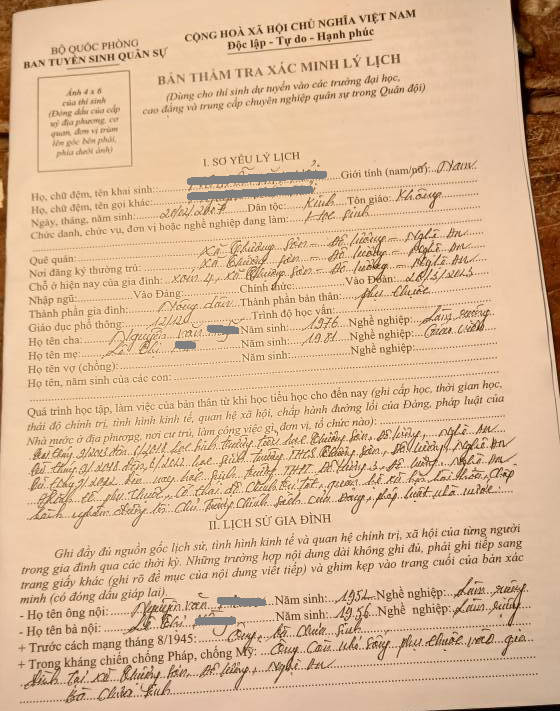 BỘ QUỐC PHÒNG
BAN TUYỂN SINH QUÂN SỰ
CỘNG HOÀ XÃ HỘI CHỦ NGHĨA VIỆT NAM
Độc lập - Tự do - Hạnh phúc
Ảnh 4 x 6
của thí sinh
(Đóng dấu của cấp
uỷ địa phương, cơ
quan, đơn vị trùm
lên góc bên phải,
phía dưới ảnh)
BẢN THẨM TRA XÁC MINH LÝ LỊCH
(Dùng cho thí sinh dự tuyển vào các trường đại học,
cao đẳng và trung cấp chuyên nghiệp quân sự trong Quân đội)
I. SƠ YẾU LÝ LỊCH
Họ, chữ đệm, tên khai sinh: Giới tính (nam/nữ): Nam
Họ, chữ đệm, tên gọi khác:
Ngày, tháng, năm sinh: Dân tộc: Kinh Tôn giáo: Không
Chức danh, chức vụ, đơn vị hoặc nghề nghiệp đang làm: Học sinh
Quê quán: Xã Thượng Sơn - Đô Lương - Nghệ An
Nơi đăng ký thường trú: Xã Thượng Sơn - Đô Lương - Nghệ An
Chỗ ở hiện nay của gia đình: xóm 4, xã Thượng Sơn - Đô Lương - Nghệ An
Nhập ngũ: Vào Đảng: Chính thức: Vào Đoàn: 26/3/2023
Thành phần gia đình: Nông dân Thành phần bản thân: phụ thuộc
Giáo dục phổ thông: 12/12 Trình độ học vấn:
Họ tên cha: Nguyễn Văn Năm sinh: 1976 Nghề nghiệp: Làm ruộng
Họ tên mẹ: Lê Thị Năm sinh: 1981 Nghề nghiệp: Giáo viên
Họ tên vợ (chồng): Năm sinh: Nghề nghiệp:
Họ tên, năm sinh của các con:
Quá trình học tập, làm việc của bản thân từ khi học tiểu học cho đến nay (ghi cấp học, thời gian học,
thái độ chính trị, tình hình kinh tế, quan hệ xã hội, chấp hành đường lối của Đảng, pháp luật của
Nhà nước ở địa phương, nơi cư trú, làm công việc gì, đơn vị, tổ chức nào):
tháng 9/2013 đến học sinh trường tiểu học Thượng Sơn, Đô Lương, Nghệ An
Từ tháng 9/2018 đến học sinh trường THCS Thượng Sơn, Đô Lương, Nghệ An
Từ tháng 9/2022 đến nay học sinh trường THPT Đô Lương 3, Đô Lương, Nghệ An
phụ thuộc, có thái độ chính trị tốt, quan hệ xã hội Chấp
hành nghiêm đường lối chủ trương chính sách của Đảng, pháp luật nhà nước.
II. LỊCH SỬ GIA ĐÌNH
Ghi đầy đủ nguồn gốc lịch sử, tình hình kinh tế và quan hệ chính trị, xã hội của từng người
trong gia đình qua các thời kỳ. Những trường hợp nội dung dài không ghi đủ, phải ghi tiếp sang
trang giấy khác (ghi rõ đề mục của nội dung viết tiếp) và ghim kẹp vào trang cuối của bản xác
minh (có đóng dấu giáp lai).
- Họ tên ông nội: Nguyễn Văn Năm sinh: 1952 Nghề nghiệp: Làm ruộng
- Họ tên bà nội: Lê Thị Năm sinh: 1956 Nghề nghiệp: Làm ruộng
+ Trước cách mạng tháng 8/1945: Ông, bà chưa sinh
+ Trong kháng chiến chống Pháp, chống Mỹ: Ông còn nhỏ sống phụ thuộc vào gia
đình tại xã Thượng Sơn, Đô Lương, Nghệ An
Bà chưa sinh